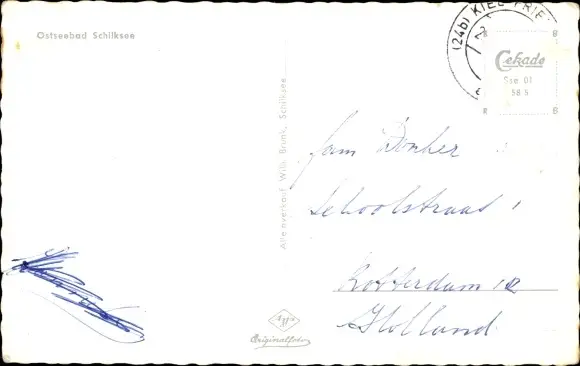 Ostseebad Schilksee
Alleinverkauf Wilh. Brunk, Schilksee
(24b) KIEL-FRIE
Cekade
Sse 01
58 5
Fam Donker
Schoolstraat 1
Rotterdam 12
Holland
Agfa
Originalfoto